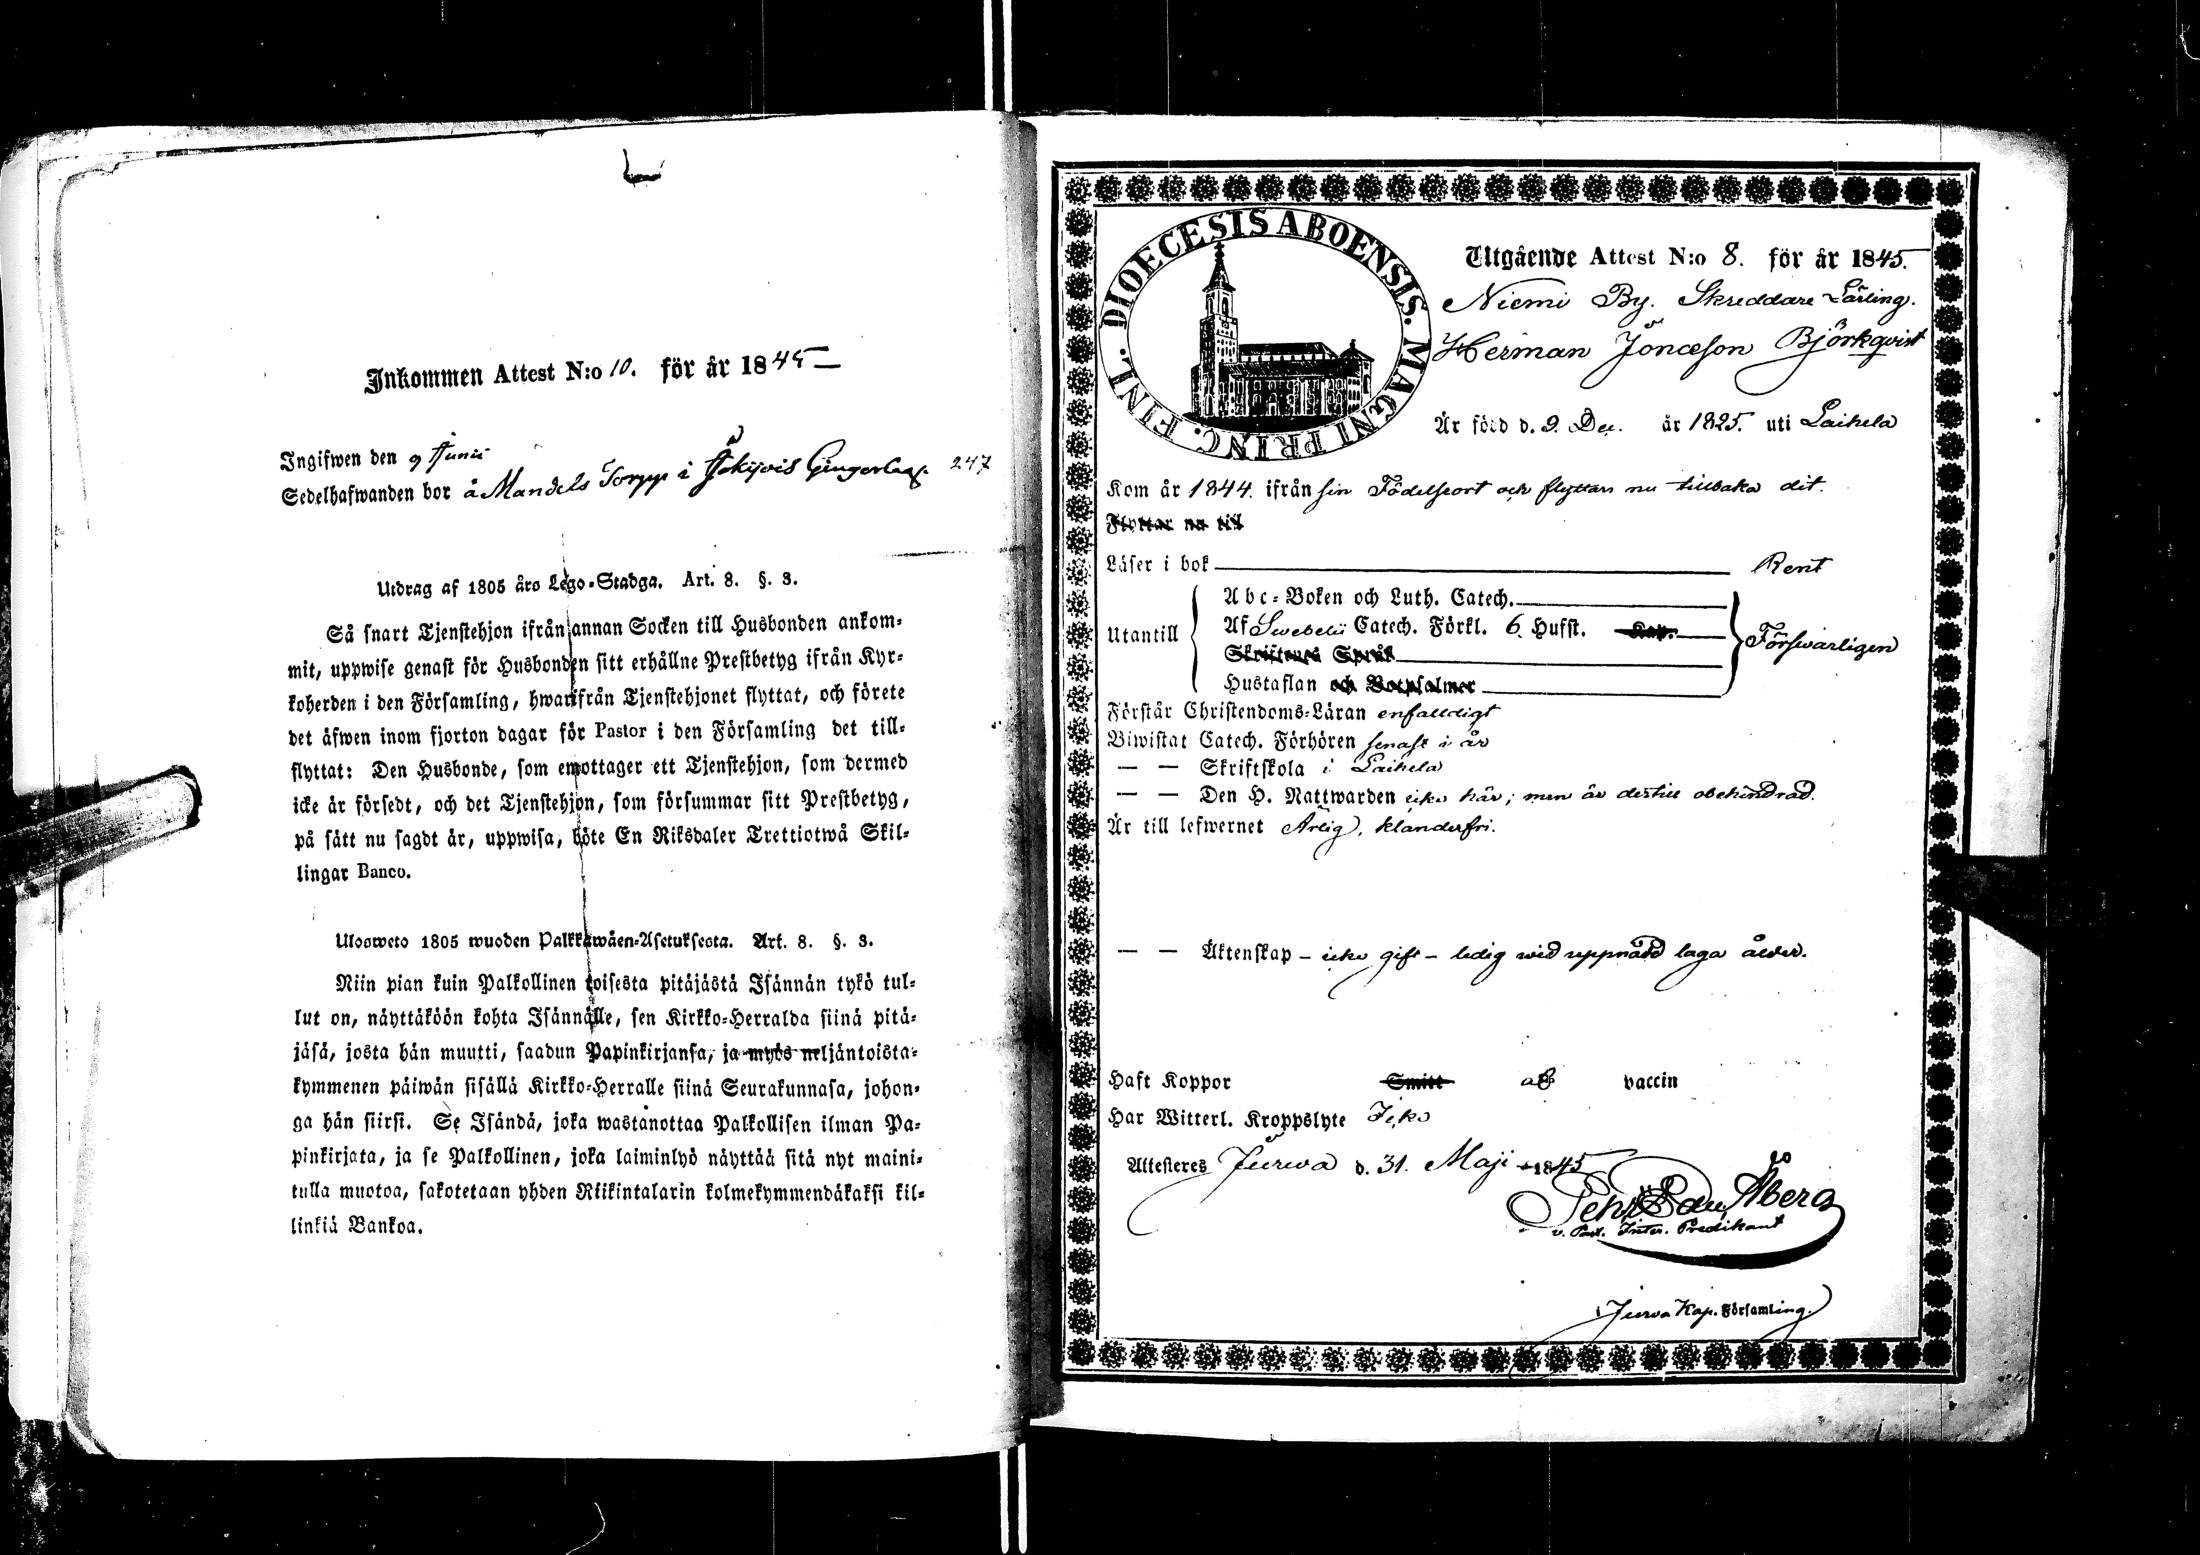 Inkommen Attest N:o 10. för år 1845
Ingifwen den 9 Junii
Sedelhafwanden bor å Mandels Torpp i 247
Utdrag af 1805 års Lego-Stadga. Art. 8. §. 3.
Så snart Tjenstehjon ifrån annan Socken till Husbonden ankom-
mit, uppwise genast för Husbonden sitt erhållne Prestbetyg ifrån Kyr-
koherden i den Församling, hwarifrån Tjenstehjonet flyttat, och förete
det äfwen inom fjorton dagar för Pastor i den Församling det till-
flyttat: Den Husbonde, som emottager ett Tjenstehjon, som dermed
icke är försedt, och det Tjenstehjon, som försummar sitt Prestbetyg,
på sätt nu sagdt är, uppwisa, böte En Riksdaler Trettiotwå Skil-
lingar Banco.
Ulosweto 1805 wuoden Palkkawäen-Asetuksesta. Art. 8. §. 3.
Niin pian kuin Palkollinen toisesta pitäjästä Isännän tykö tul-
lut on, näyttäköön kohta Isännälle, sen Kirkko-Herralda siinä pitä-
jäsä, josta hän muutti, saadun Papinkirjansa, ja myös neljäntoista-
kymmenen päiwän sisällä Kirkko-Herralle siinä Seurakunnasa, johon-
ga hän siirsi. Se Isändä, joka wastanottaa Palkollisen ilman Pa-
pinkirjata, ja se Palkollinen, joka laiminlyö näyttää sitä nyt maini-
tulla muotoa, sakotetaan yhden Riikintalarin kolmekymmendäkaksi kil-
linkiä Bankoa.
DIOECESIS ABOENSIS. MAGNI PRINC. FINL.
Utgående Attest N:o 8. för år 1845.
Niemi By. Skreddare Lärling.
Herman Jönæson Björkqvist
Är född d. 9. Dec. år 1825. uti Laihela
Kom år 1844. ifrån sin Födelseort och flyttar nu tillbaka dit.
Flyttar nu till
Läser i bok Rent
Utantill
Abc-Boken och Luth. Catech.
Af Swebelii Catech. Förkl. 6. Hufst. Kap.
Skriftenes Språk
Hustaflan och Botpsalmer
Förswarligen
Förstår Christendoms-Läran enfalldigt
Biwistat Catech. Förhören senast i år
— — Skriftskola i Laihela
— — Den H. Nattwarden icke här; men är dertill obehindrad.
Är till lefwernet Ärlig, klanderfri.
— — Äktenskap – icke gift – ledig wid uppnådd laga ålder.
Haft Koppor Smitt af vaccin
Har Witterl. Kroppslyte Icke
Attesteres Jurwa d. 31. Maji 1845
Pehr Åberg
v. Past. Inter. Predikant
i Jurva Kap. Församling.